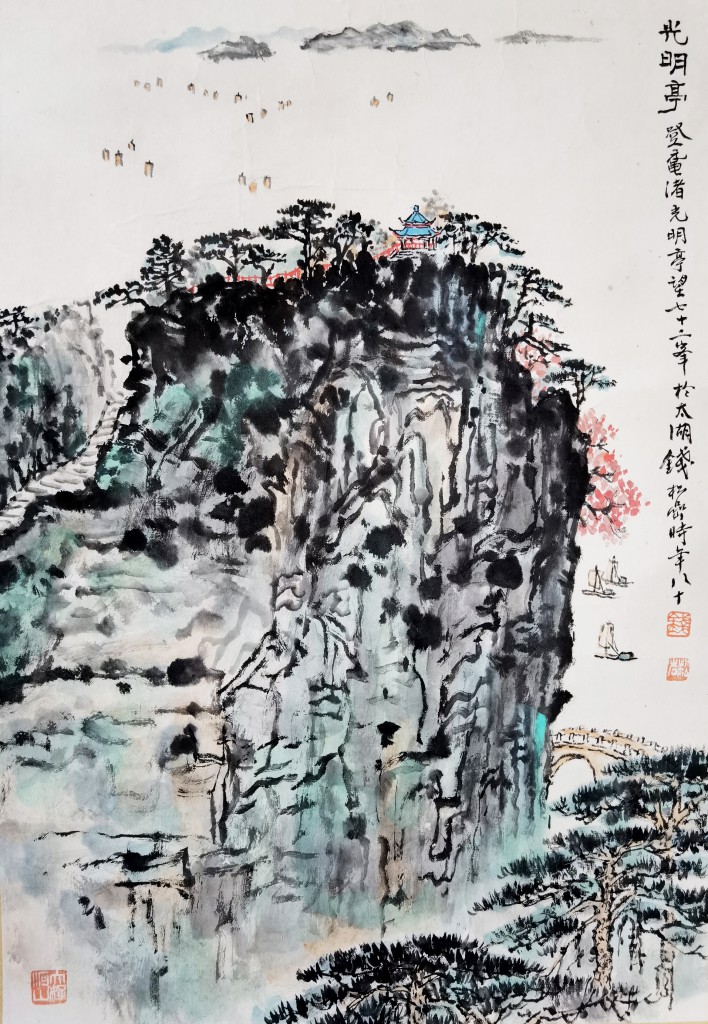 光明亭 登鼋渚光明亭望七十二峯於太湖 錢松嵒時年八十
錢